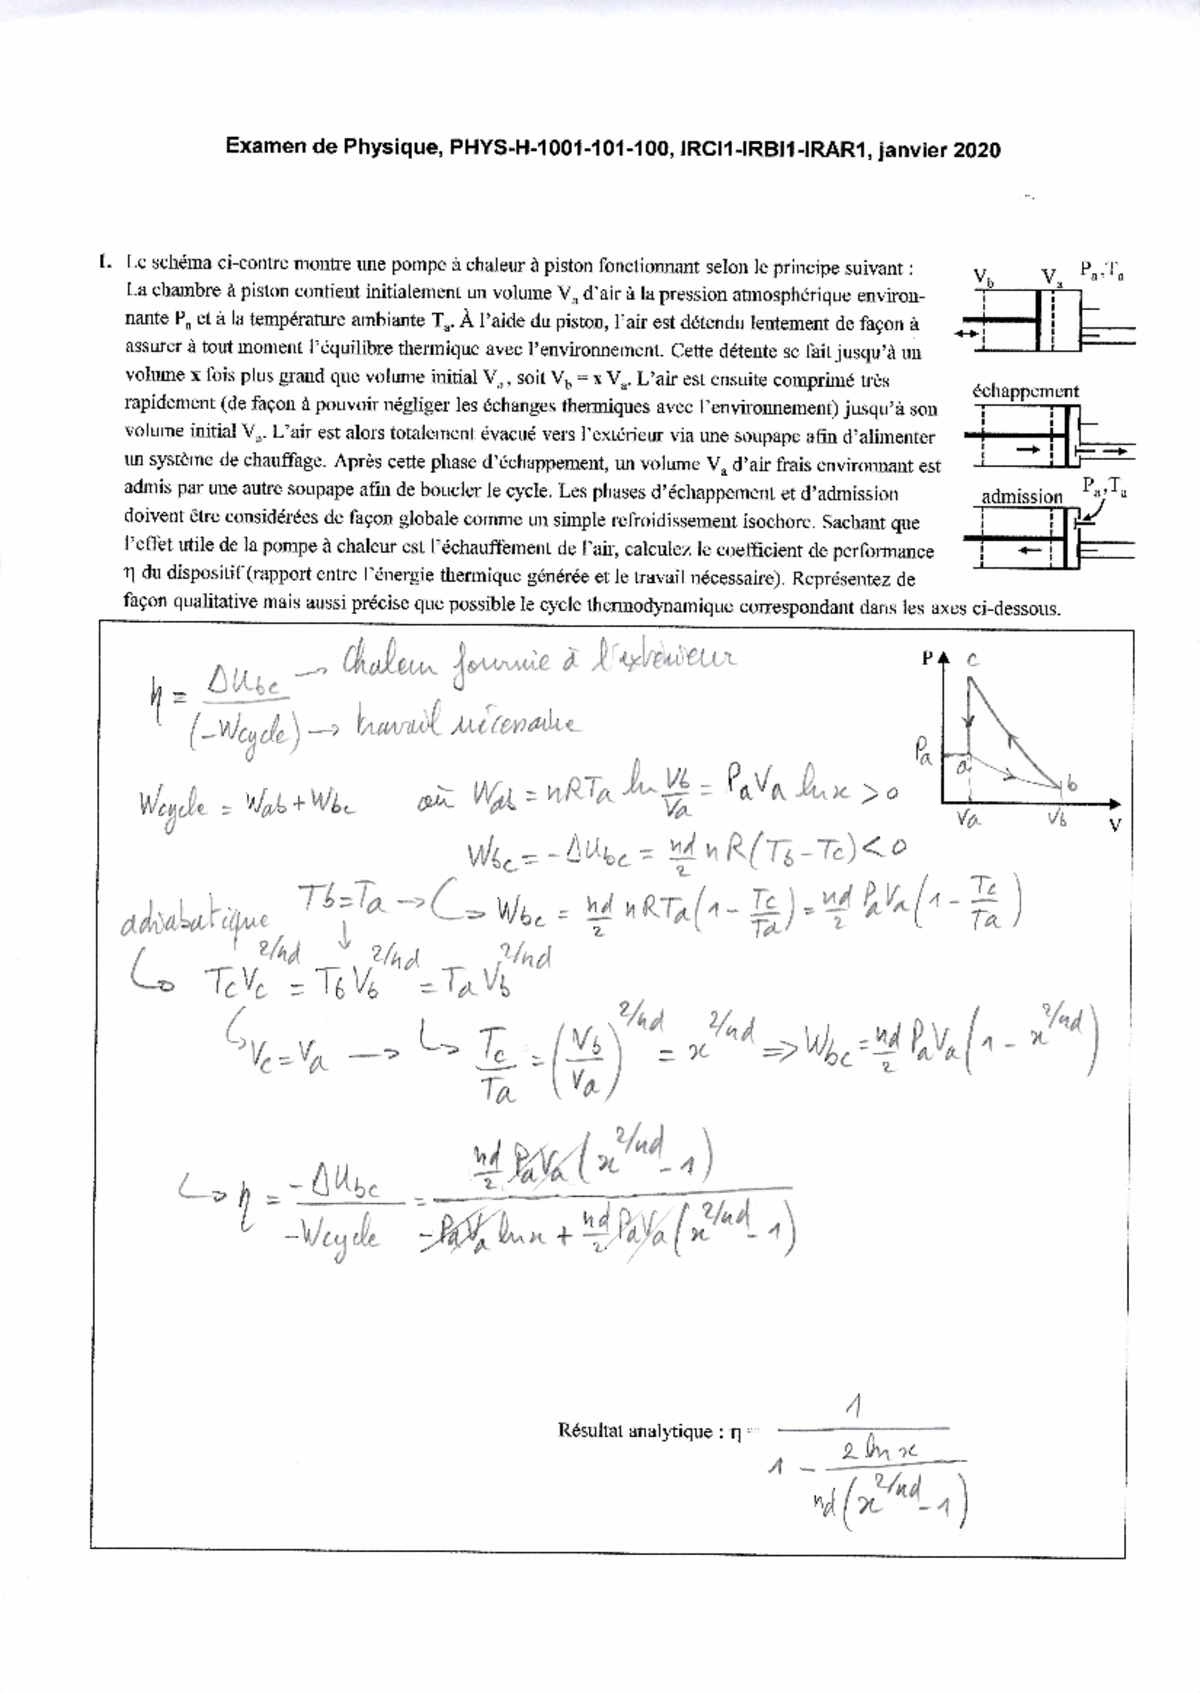 Examen de Physique, PHYS-H-1001-101-100, IRCI1-IRBI1-IRAR1, janvier 2020
I. Le schéma ci-contre montre une pompe à chaleur à piston fonctionnant selon le principe suivant :
La chambre à piston contient initialement un volume Va d'air à la pression atmosphérique environ-
nante Pa et à la température ambiante Ta. À l'aide du piston, l'air est détendu lentement de façon à
assurer à tout moment l'équilibre thermique avec l'environnement. Cette détente se fait jusqu'à un
volume x fois plus grand que volume initial Va, soit Vb = x Va. L'air est ensuite comprimé très
rapidement (de façon à pouvoir négliger les échanges thermiques avec l'environnement) jusqu'à son
volume initial Va. L'air est alors totalement évacué vers l'extérieur via une soupape afin d'alimenter
un système de chauffage. Après cette phase d'échappement, un volume Va d'air frais environnant est
admis par une autre soupape afin de boucler le cycle. Les phases d'échappement et d'admission
doivent être considérées de façon globale comme un simple refroidissement isochore. Sachant que
l'effet utile de la pompe à chaleur est l'échauffement de l'air, calculez le coefficient de performance
η du dispositif (rapport entre l'énergie thermique générée et le travail nécessaire). Représentez de
façon qualitative mais aussi précise que possible le cycle thermodynamique correspondant dans les axes ci-dessous.
Vb Va Pa,Ta
échappement
admission Pa,Ta
η = ΔUbc / (-Wcycle)
→ Chaleur fournie à l'extérieur
→ travail nécessaire
P c
Pa a b
Va Vb V
Wcycle = Wab + Wbc où Wab = nRTa ln Vb/Va = PaVa ln x > 0
Wbc = -ΔUbc = nd/2 nR(Tb - Tc) < 0
adiabatique Tb = Ta → ↳ Wbc = nd/2 nRTa(1 - Tc/Ta) = nd/2 PaVa(1 - Tc/Ta)
↳ TcVc^2/nd = TbVb^2/nd = TaVb^2/nd
↳ Vc = Va → ↳ Tc/Ta = (Vb/Va)^2/nd = x^2/nd ⇒ Wbc = nd/2 PaVa(1 - x^2/nd)
↳ η = -ΔUbc / -Wcycle = nd/2 PaVa(x^2/nd - 1) / -PaVa ln x + nd/2 PaVa(x^2/nd - 1)
Résultat analytique : η = 1 / 1 - 2 ln x / nd(x^2/nd - 1)